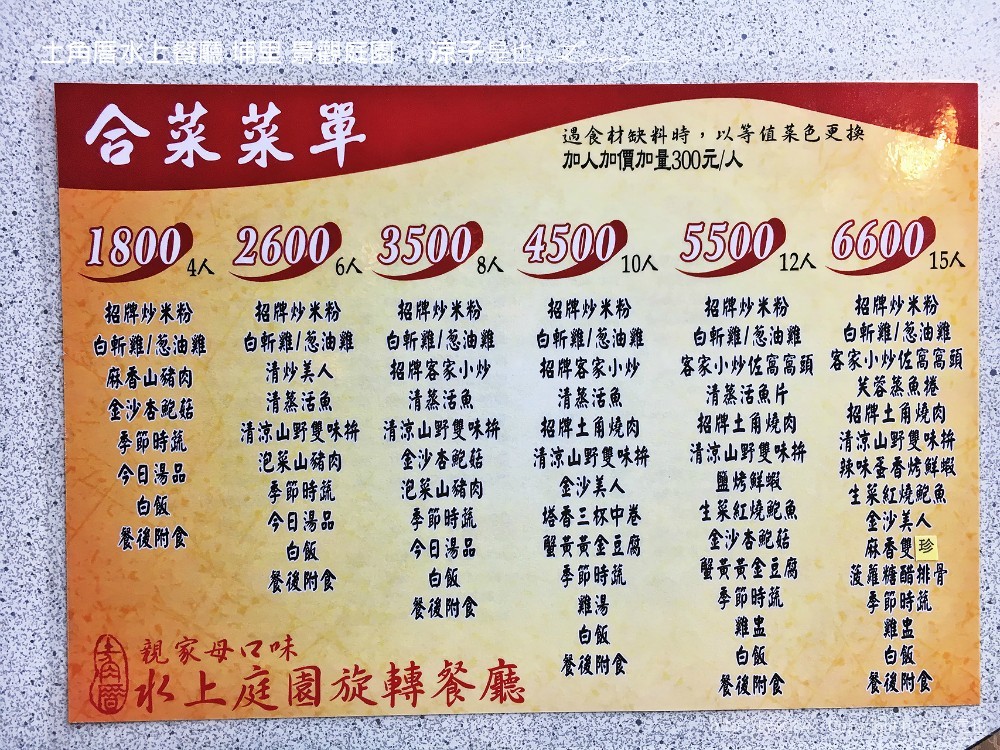 土角厝水上餐廳 埔里 景觀庭園
合菜菜單
遇食材缺料時，以等值菜色更換
加人加價加量300元/人
1800 4人
招牌炒米粉
白斬雞/葱油雞
麻香山豬肉
金沙杏鮑菇
季節時蔬
今日湯品
白飯
餐後附食
2600 6人
招牌炒米粉
白斬雞/葱油雞
清炒美人
清蒸活魚
清涼山野雙味拚
泡菜山豬肉
季節時蔬
今日湯品
白飯
餐後附食
3500 8人
招牌炒米粉
白斬雞/葱油雞
招牌客家小炒
清蒸活魚
清涼山野雙味拚
金沙杏鮑菇
泡菜山豬肉
季節時蔬
今日湯品
白飯
餐後附食
4500 10人
招牌炒米粉
白斬雞/葱油雞
招牌客家小炒
清蒸活魚
招牌土角燒肉
清涼山野雙味拚
金沙美人
塔香三杯中卷
蟹黃黃金豆腐
季節時蔬
雞湯
白飯
餐後附食
5500 12人
招牌炒米粉
白斬雞/葱油雞
客家小炒佐窩窩頭
清蒸活魚片
招牌土角燒肉
清涼山野雙味拚
鹽烤鮮蝦
生菜紅燒鮑魚
金沙杏鮑菇
蟹黃黃金豆腐
季節時蔬
雞盅
白飯
餐後附食
6600 15人
招牌炒米粉
白斬雞/葱油雞
客家小炒佐窩窩頭
芙蓉蒸魚捲
招牌土角燒肉
清涼山野雙味拚
辣味蛋香烤鮮蝦
生菜紅燒鮑魚
金沙美人
麻香雙珍
菠蘿糖醋排骨
季節時蔬
雞盅
白飯
餐後附食
土角厝
親家母口味
水上庭園旋轉餐廳